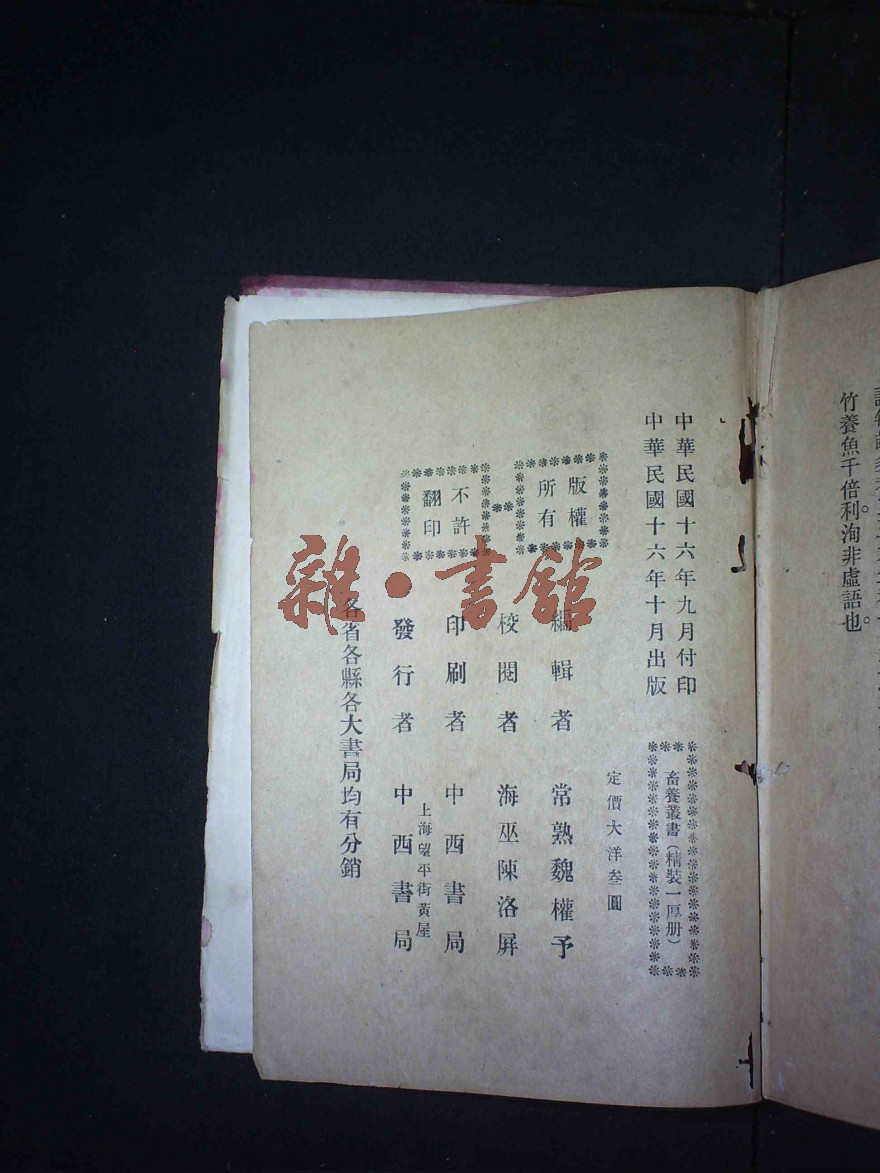 竹養魚千倍利洵非虛語也。
中華民國十六年九月付印
中華民國十六年十月出版
畜養叢書(精裝一厚册)
定價大洋叁圓
版權
所有
不許
翻印
編輯者 常熟魏權予
校閱者 海巫陳洛屏
印刷者 中西書局
上海望平街黃屋
發行者 中西書局
各省各縣各大書局均有分銷
雜·書館